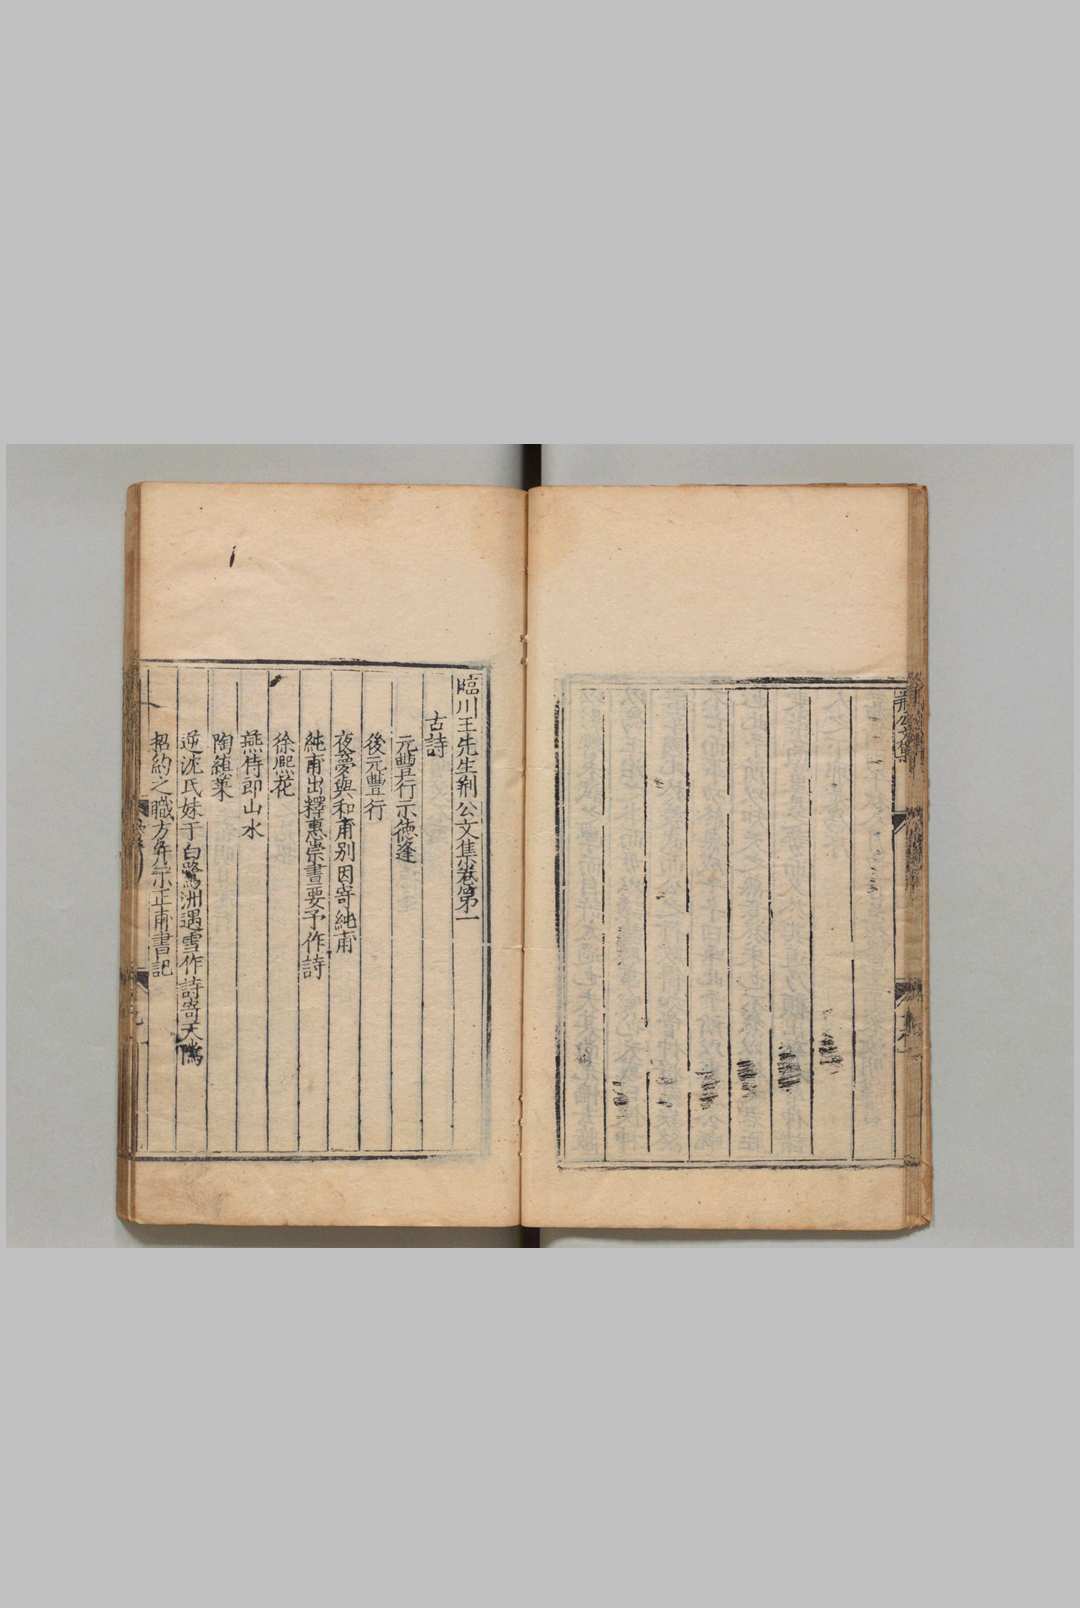 荊公文集
臨川王先生荊公文集卷第一
古詩
元豐行示德逢
後元豐行
夜夢與和甫別因寄純甫
純甫出釋惠崇畫要予作詩
徐熙花
燕侍郎山水
陶縝菜
逆沈氏妹于白鷺洲遇雪作詩寄天隲
招約之職方并示正甫書記